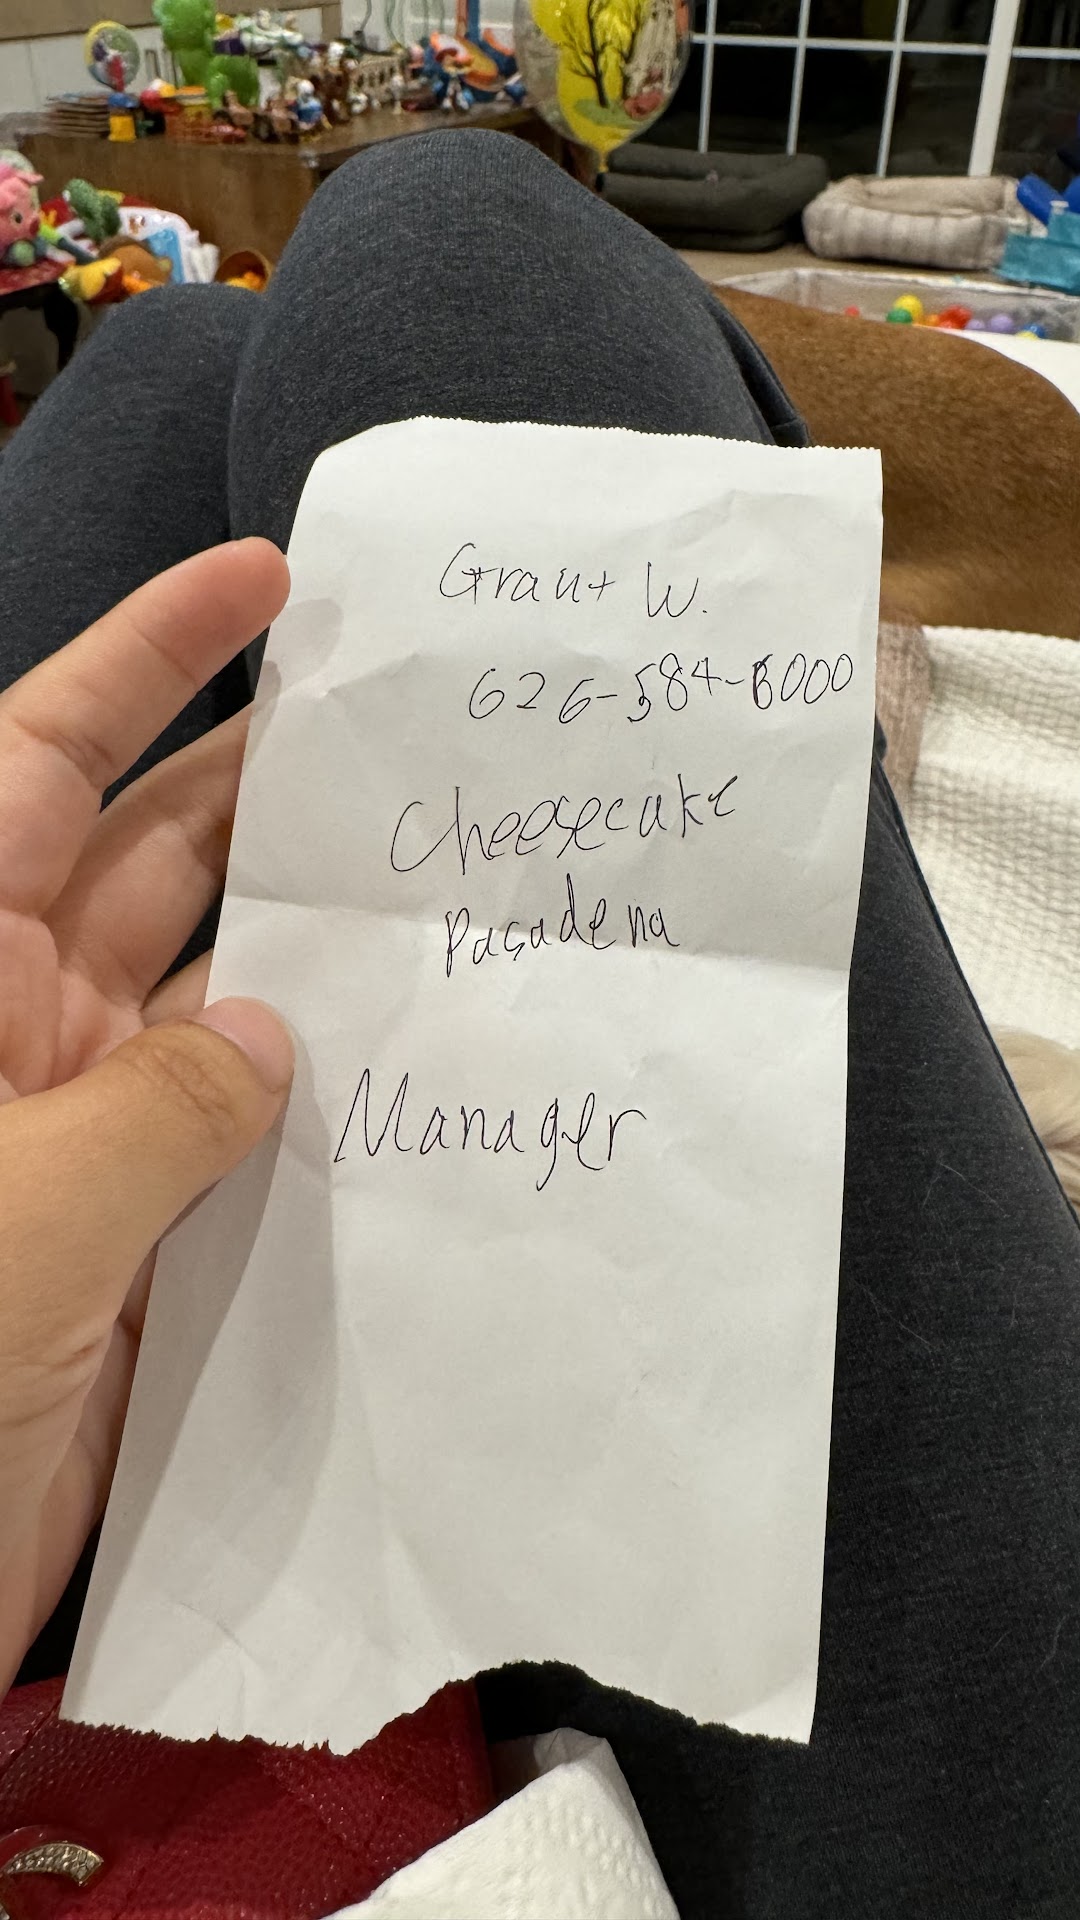 Grant W.
626-584-6000
Cheesecake
Pasadena
Manager